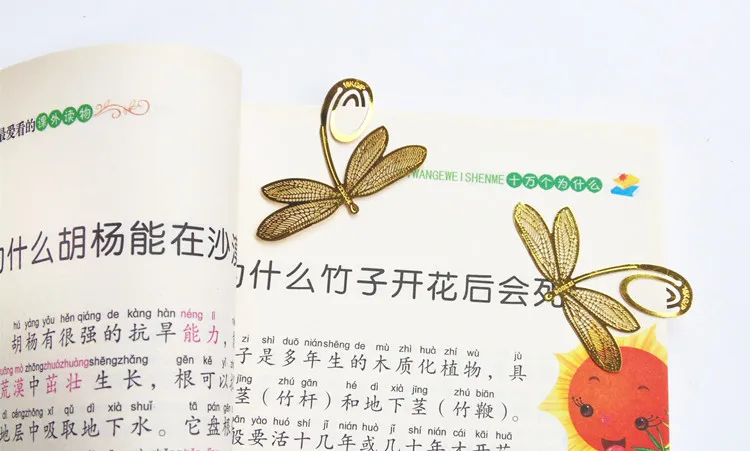 最爱看的课外读物
什么胡杨能在沙
hú yáng yǒu hěn qiáng de kàng hàn néng lì
胡杨有很强的抗旱能力,
mò zhōng zhuó zhuàng shēng zhǎng gēn kě yǐ
荒漠中茁壮生长,根可以
dì céng zhōng xī qǔ dì xià shuǐ tā pán gēn
地层中吸取地下水。它盘根
WANGEWEISHENME 十万个为什么
为什么竹子开花后会死
zi shì duō nián shēng de mù zhì huà zhí wù jù
子是多年生的木质化植物,具
jīng zhú gān hé dì xià jīng zhú biān
茎(竹杆)和地下茎(竹鞭)。
yào huó shí jǐ nián huò jǐ shí nián cái kāi huā
般要活十几年或几十年才开花